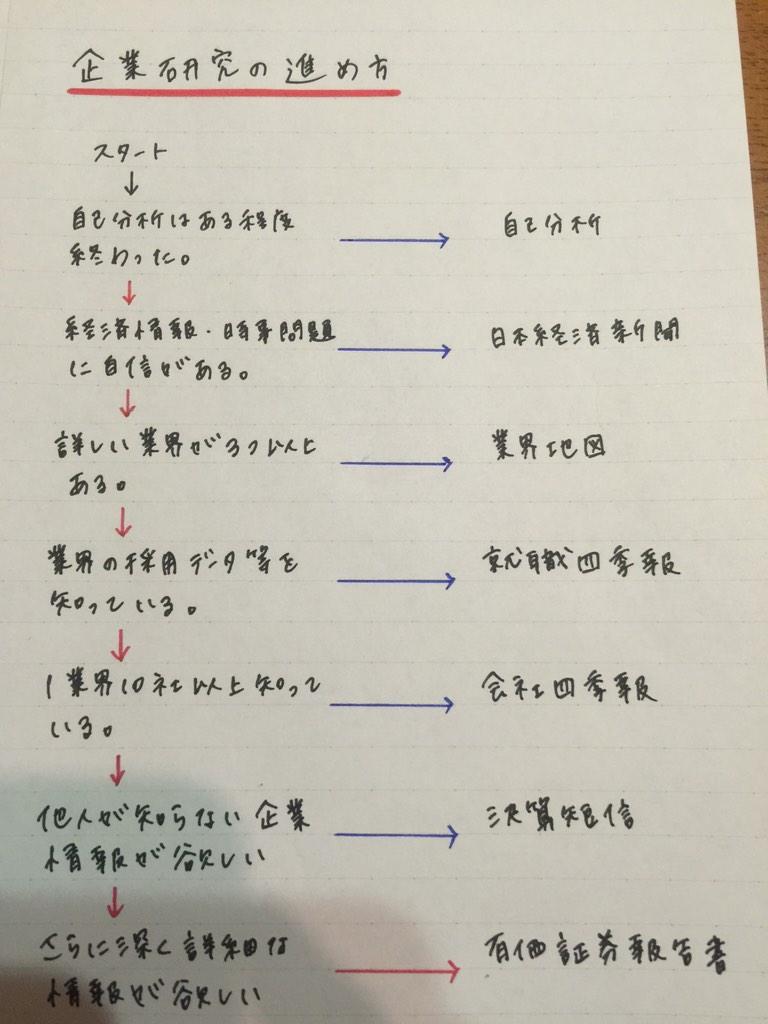 企業研究の進め方
スタート
↓
自己分析はある程度 → 自己分析
終わった。
↓
経済情報・時事問題 → 日本経済新聞
に自信がある。
↓
詳しい業界が3つ以上 → 業界地図
ある。
↓
業界の採用データ等を → 就職四季報
知っている。
↓
1業界10社以上知って → 会社四季報
いる。
↓
他人が知らない企業 → 決算短信
情報が欲しい
↓
さらに深く詳細な → 有価証券報告書
情報が欲しい